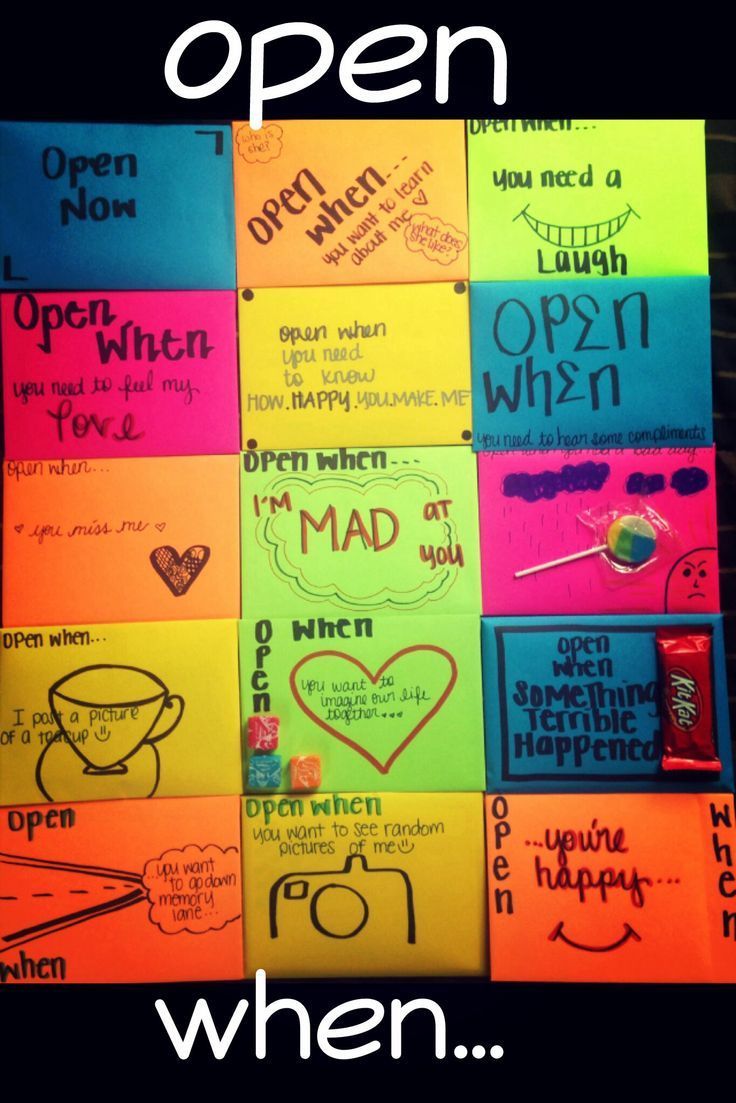 open
Open
Now
who is
she?
OPEN
WHEN...
you want to learn
about me
What does
she like?
OPEN WHEN...
you need a
Laugh
Open
When
you need to feel my
love
open when
you need
to know
HOW.HAPPY.YOU.MAKE.ME
OPEN
WHEN
you need to hear some compliments
open when...
you miss me
OPEN WHEN...
I'M
MAD
AT
YOU
open when you had a bad day...
OPEN WHEN...
I post a picture
of a teacup
OPEN
WHEN
you want to
imagine our life
together...
open
when
Something
Terrible
Happened
KitKat
Open
...you want
to go down
memory
lane...
when
OPEN WHEN
you want to see random
pictures of me
Open
...you're
happy...
when
when...